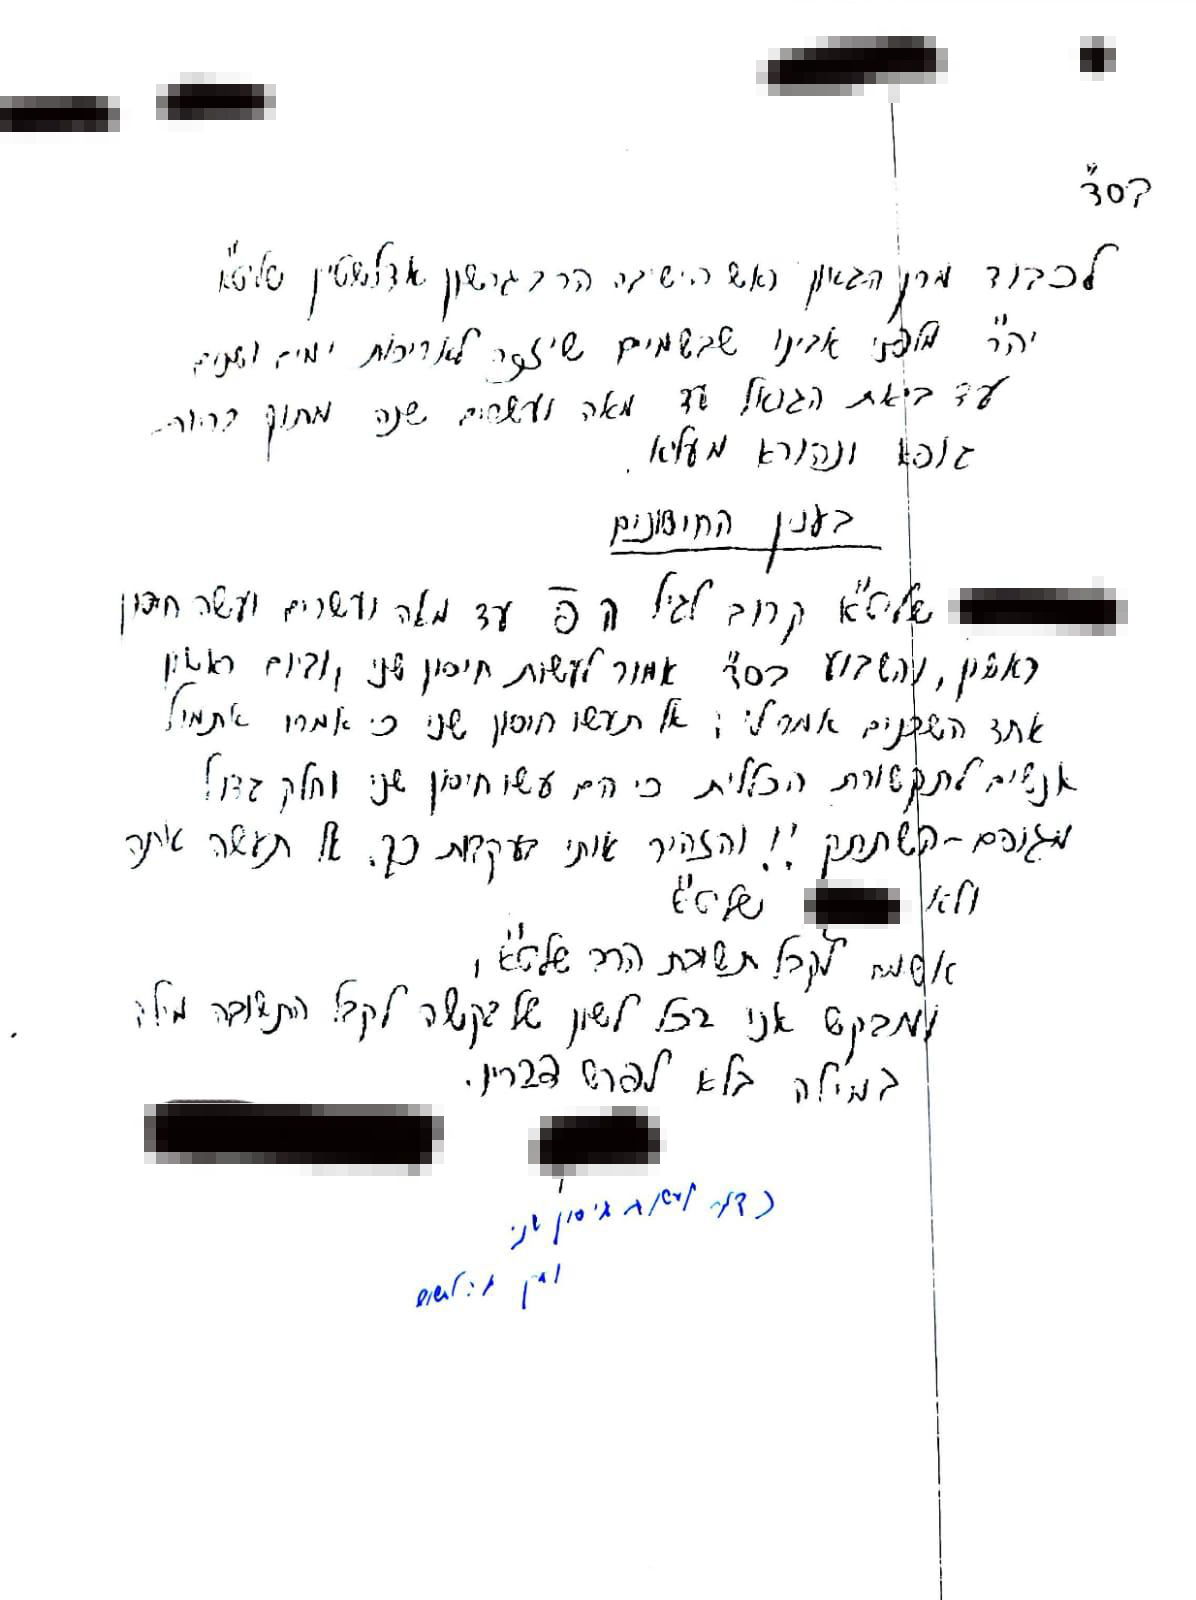 בסד"
לכבוד מרן הגאון ראש הישיבה הרב גרשון אדלשטין שליט"א
יה"ר מלפני אבינו שבשמים שיזכה לאריכות ימים ושנים
עד ביאת הגואל עד מאה ועשרים שנה מתוך בריות
גופא ונהורא מעליא.
בענין החיסונים
שליט"א קרוב לגיל ה פ עד מאה ועשרים ועשה חיסון
ראשון, והשבוע בסד" אמור לעשות חיסון שני, וביום ראשון
אחד השכנים אמר לי; אל תעשו חיסון שני כי אמרו אתמול
אנשים לתקשורת הכללית כי הם עשו חיסון שני וחלק גדול
מגופם-השתתק!! והזהיר אותי בעקבות כך. אל תעשה אתה
ולא שליט"א
אשמח לקבל תשובת הרב שליט"א,
ומבקש אני בכל לשון של בקשה לקבל התשובה מילה
במילה בלא לפרש דבריו.
כדאי לעשות חיסון שני
ואין לחשוש